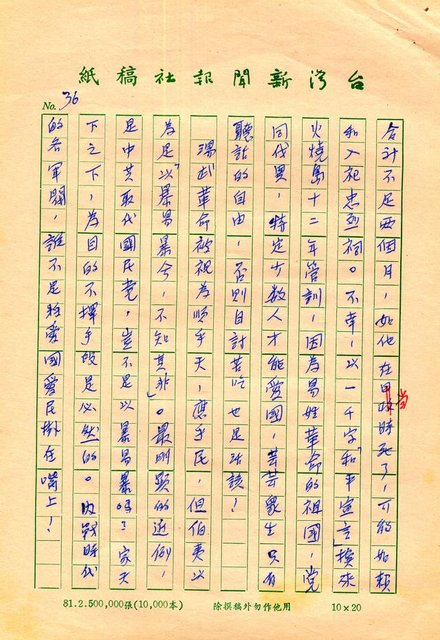 台灣新聞報社稿紙
No. 36
合計不足兩個月，如他在當時死了，可能如賴
和入祀忠烈祠。不幸，以一千字「和平宣言」換來
火燒島十二年管訓，因為易姓革命的祖國，黨
同伐異，特定少數人才能愛國，芸芸眾生只有
聽話的自由，否則自討苦吃也是活該！
湯武革命被視為順乎天，應乎民，但伯夷以
為是「以暴易暴兮，不知其非」。最明顯的近例，
是中共取代國民黨，豈不是以暴易暴嗎？家天
下之下，為目的不擇手段是必然的。內戰時代
的各軍閥，誰不是把愛國愛民掛在嘴上！
81.2.500,000張(10,000本) 除撰稿外勿作他用 10×20